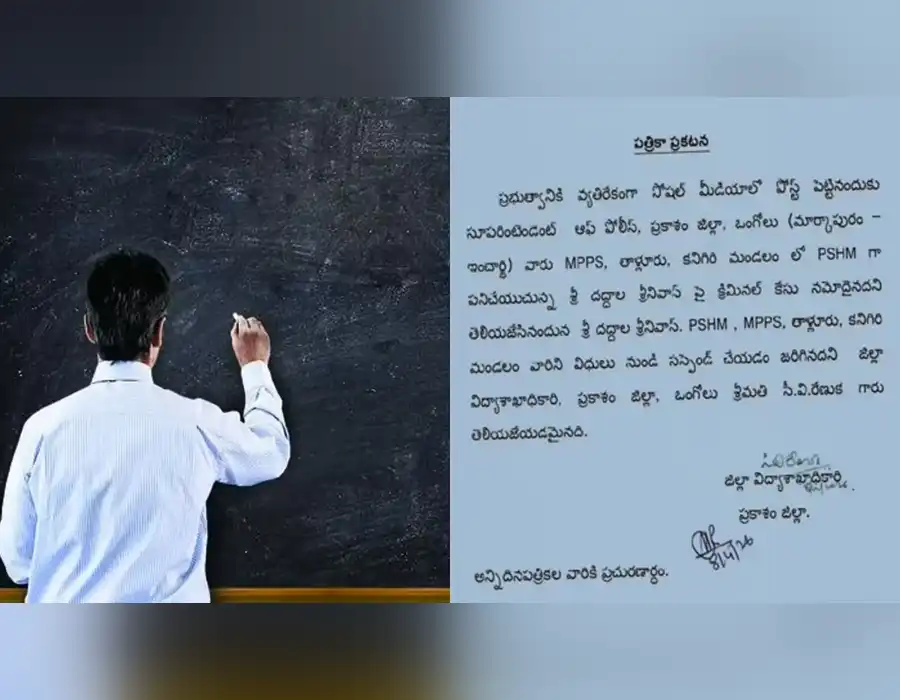 పత్రికా ప్రకటన
ప్రభుత్వానికి వ్యతిరేకంగా సోషల్ మీడియాలో పోస్ట్ పెట్టినందుకు
సూపరింటెండెంట్ ఆఫ్ పోలీస్, ప్రకాశం జిల్లా, ఒంగోలు (మార్కాపురం –
ఇంచార్జి) వారు MPPS, తాళ్లూరు, కనిగిరి మండలం లో PSHM గా
పనిచేయుచున్న శ్రీ దద్దాల శ్రీనివాస్ పై క్రిమినల్ కేసు నమోదైనదని
తెలియజేసినందున శ్రీ దద్దాల శ్రీనివాస్. PSHM , MPPS, తాళ్లూరు, కనిగిరి
మండలం వారిని విధులు నుండి సస్పెండ్ చేయడం జరిగినదని జిల్లా
విద్యాశాఖాధికారి, ప్రకాశం జిల్లా, ఒంగోలు శ్రీమతి సీ.వి.రేణుక గారు
తెలియజేయడమైనది.
జిల్లా విద్యాశాఖాధికారి,
ప్రకాశం జిల్లా.
అన్నిదినపత్రికల వారికి ప్రచురణార్థం.